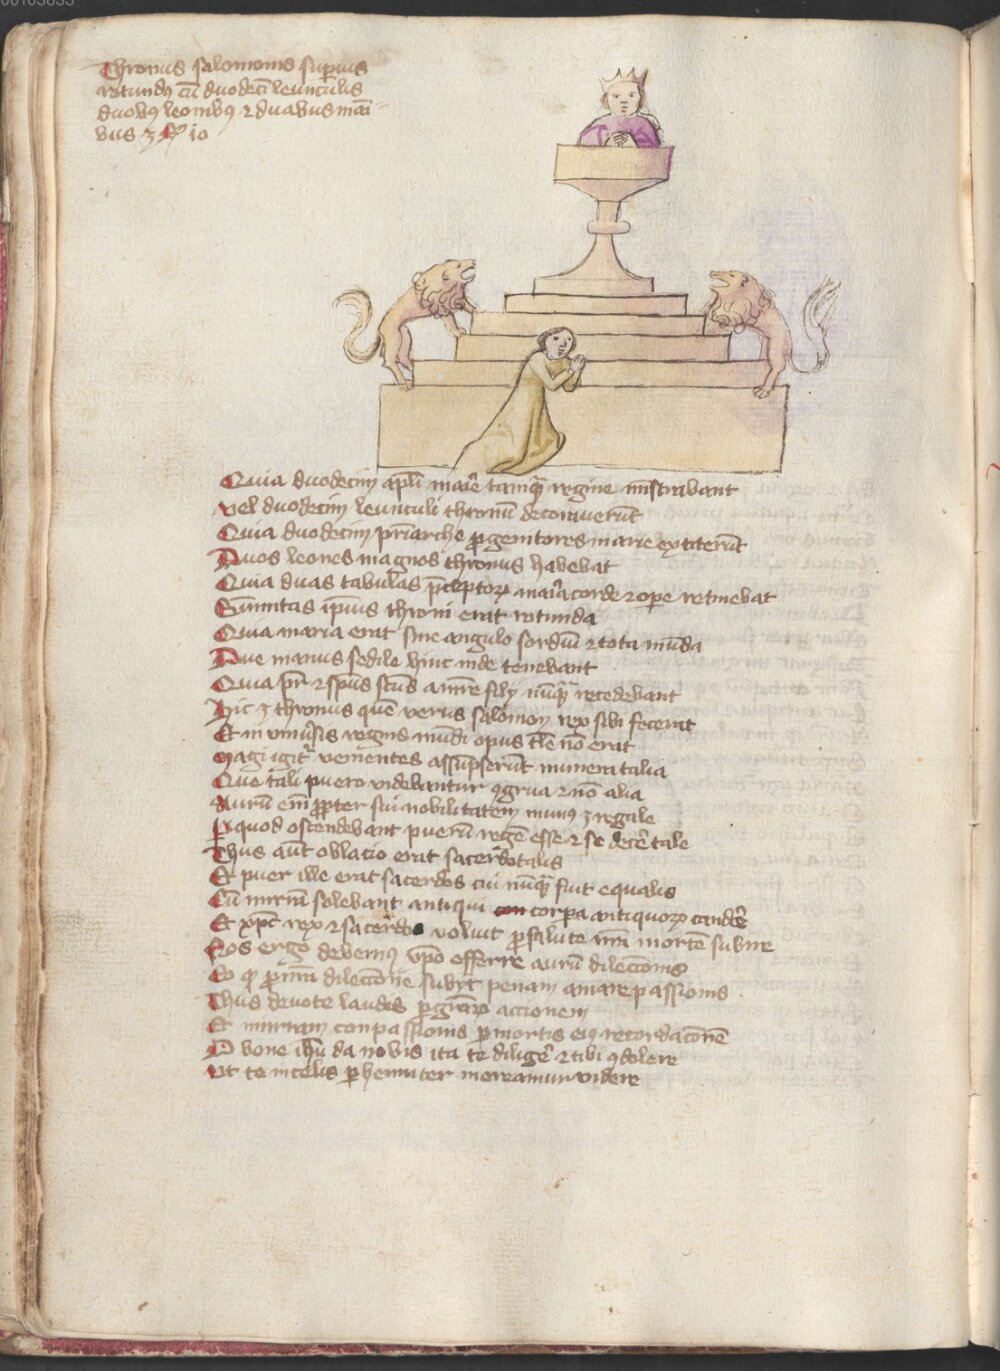 00103835
Thronus salomonis superius
rotundus cu duodeci leunculis
duobus leonibus et duabus mani
bus 3 R 10
Quia duodecim apli marie tamqua regine mistrabant
Vel duodecim leunculi thronu decorauerut
Quia duodecim priarche pgenitores marie extiterut
Duos leones magnos thronus habebat
Quia duas tabulas pceptor maria corde et ope retinebat
Sumitas ipius throni erat rotunda
Quia maria erat sine angulo sordiu et tota muda
Due manus sedile hinc inde tenebant
Quia pr et spus scus a mre filij nuqua recedebant
Hic 3 thronus que verus salomon rex sibi fecerat
Et in vniusis regnis mudi opus tle no erat
Magi igit venientes assupserut munera talia
Que tali puero videbantur 9grua et no alia
Auru em ppter sui nobilitatem mun9 3 regale
P quod ostendebant pueru rege esse et se dece tale
Thus aut oblacio erat sacerdotalis
Et puer ille erat sacerdos cui nuqua fuit equalis
Cu mirra solebant antiqui corpa antiquor condire
Et xpc rex et sacerdos voluit p salute nra morte subire
Nos ergo debem9 xpo offerre auru dileccionis
Eo q p nra dileccione subijt penam amare passionis
Thus deuote laudis p graru accionem
Et mirram conpassionis p mortis ei9 recordacone
O bone ihu da nobis ita te diligere et tibi 9dolere
Ut te in celis phenniter mereamur videre